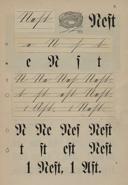 Nest Nest
n N s t
e N s t
N Ne Nes Nest
t st est Nest
1 Ast, 1 Nest.
N Ne Nes Nest
t st est Nest
1 Nest, 1 Ast.